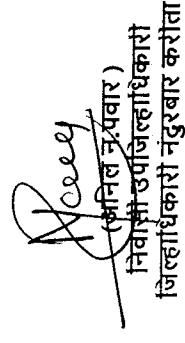 (अनिल न.पवार)
निवासी उपजिल्हाधिकारी
जिल्हाधिकारी नंदुरबार करीता